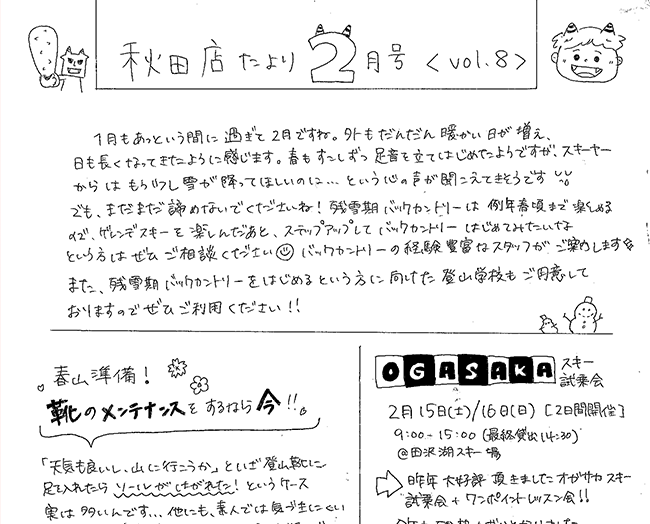 秋田店だより 2月号 <vol.8>
1月もあっという間に過ぎて2月ですね。外もだんだん暖かい日が増え、
日も長くなってきたように感じます。春もすこしずつ足音を立てはじめたようですが、スキーヤー
からはもう少し雪が降ってほしいのに…という心の声が聞こえてきそうです
でも、まだまだ諦めないでくださいね！残雪期バックカントリーは例年春頃まで楽しめる
ので、ゲレンデスキーを楽しんだあと、ステップアップしてバックカントリーはじめてみたいな
という方はぜひご相談ください バックカントリーの経験豊富なスタッフがご案内します
また、残雪期バックカントリーをはじめるという方に向けた登山学校もご用意して
おりますのでぜひご利用ください!!
春山準備！
靴のメンテナンスをするなら今!!
「天気も良いし、山に行こうか」といざ登山靴に
足を入れたらソールがはがれた！というケース
実は多いんです...他にも、素人では気づきにくい
OGASAKA スキー
試乗会
2月15日(土)/16日(日) [2日間開催]
9:00-15:00 (最終貸出14:30)
@田沢湖スキー場
昨年大好評頂きましたオガサカスキー
試乗会+ワンポイントレッスン会!!